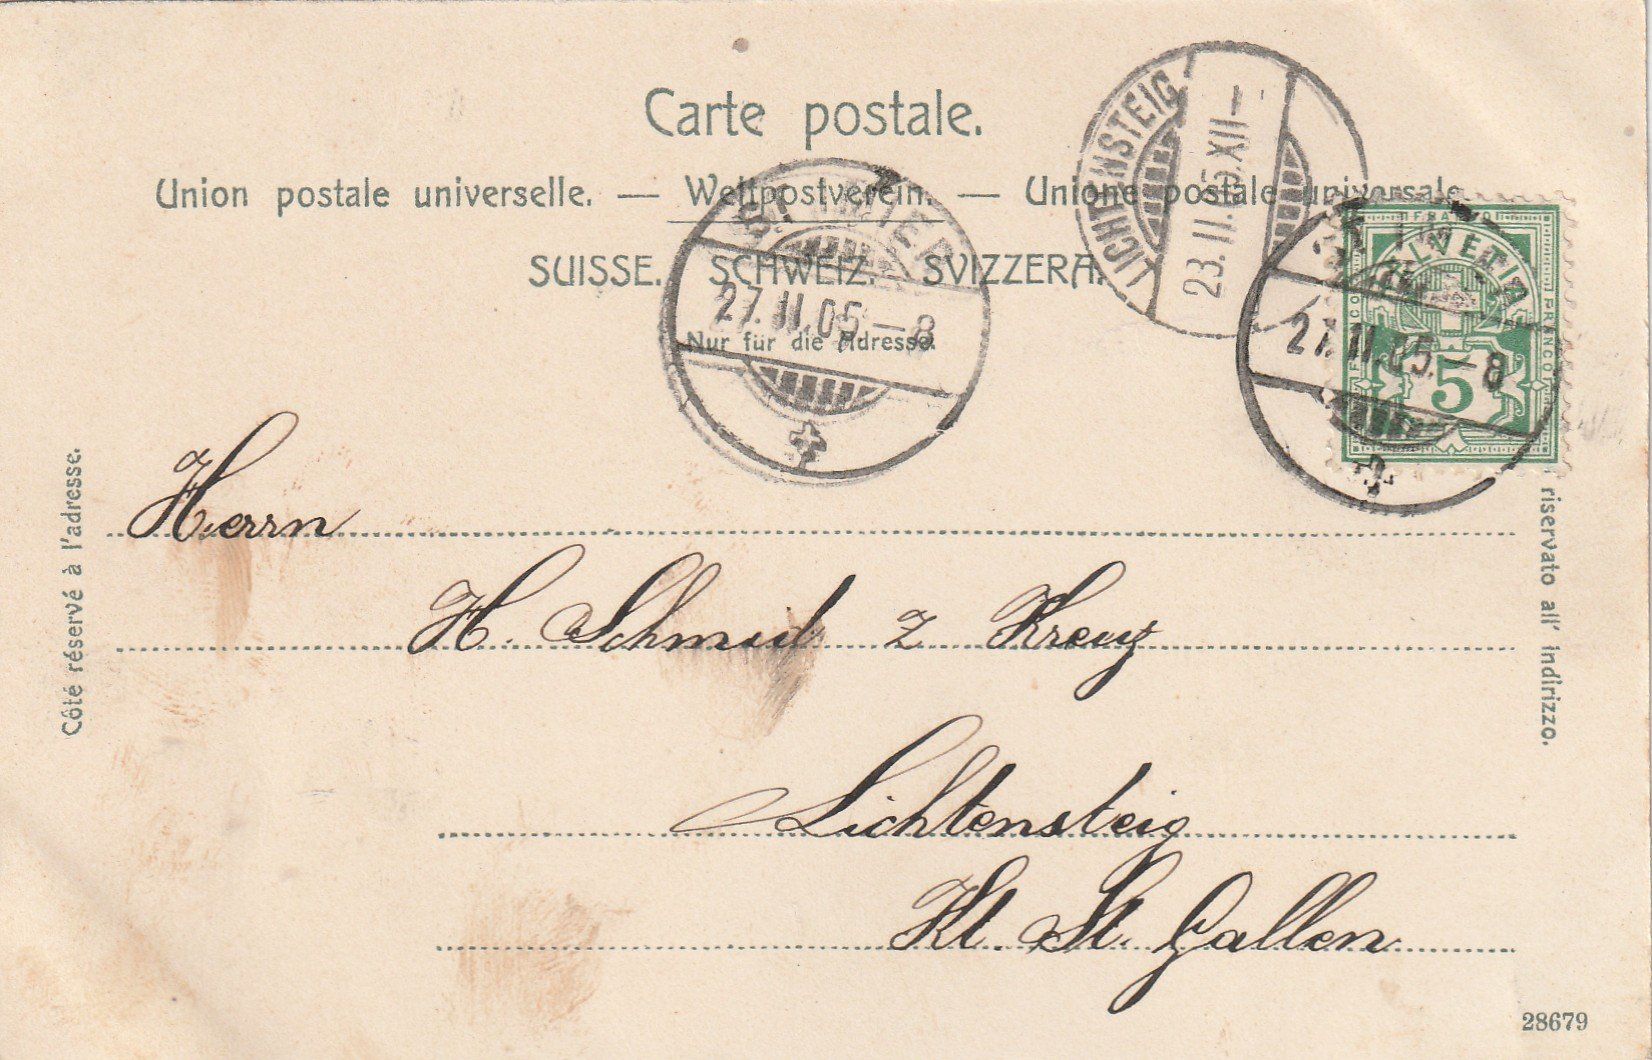 Carte postale.
Union postale universelle. — Weltpostverein. — Unione postale universale.
SUISSE. SCHWEIZ. SVIZZERA.
Nur für die Adresse.
LICHTENSTEIG
23.II.05.XII—
27.II.05.—8
27.II.05.—8
FRANCO
HELVETIA
FRANCO
FRANCO
5
Côté réservé à l'adresse.
riservato all' indirizzo.
Herrn
H. Schmid z Kreuz
Lichtensteig
Kt. St. Gallen
28679